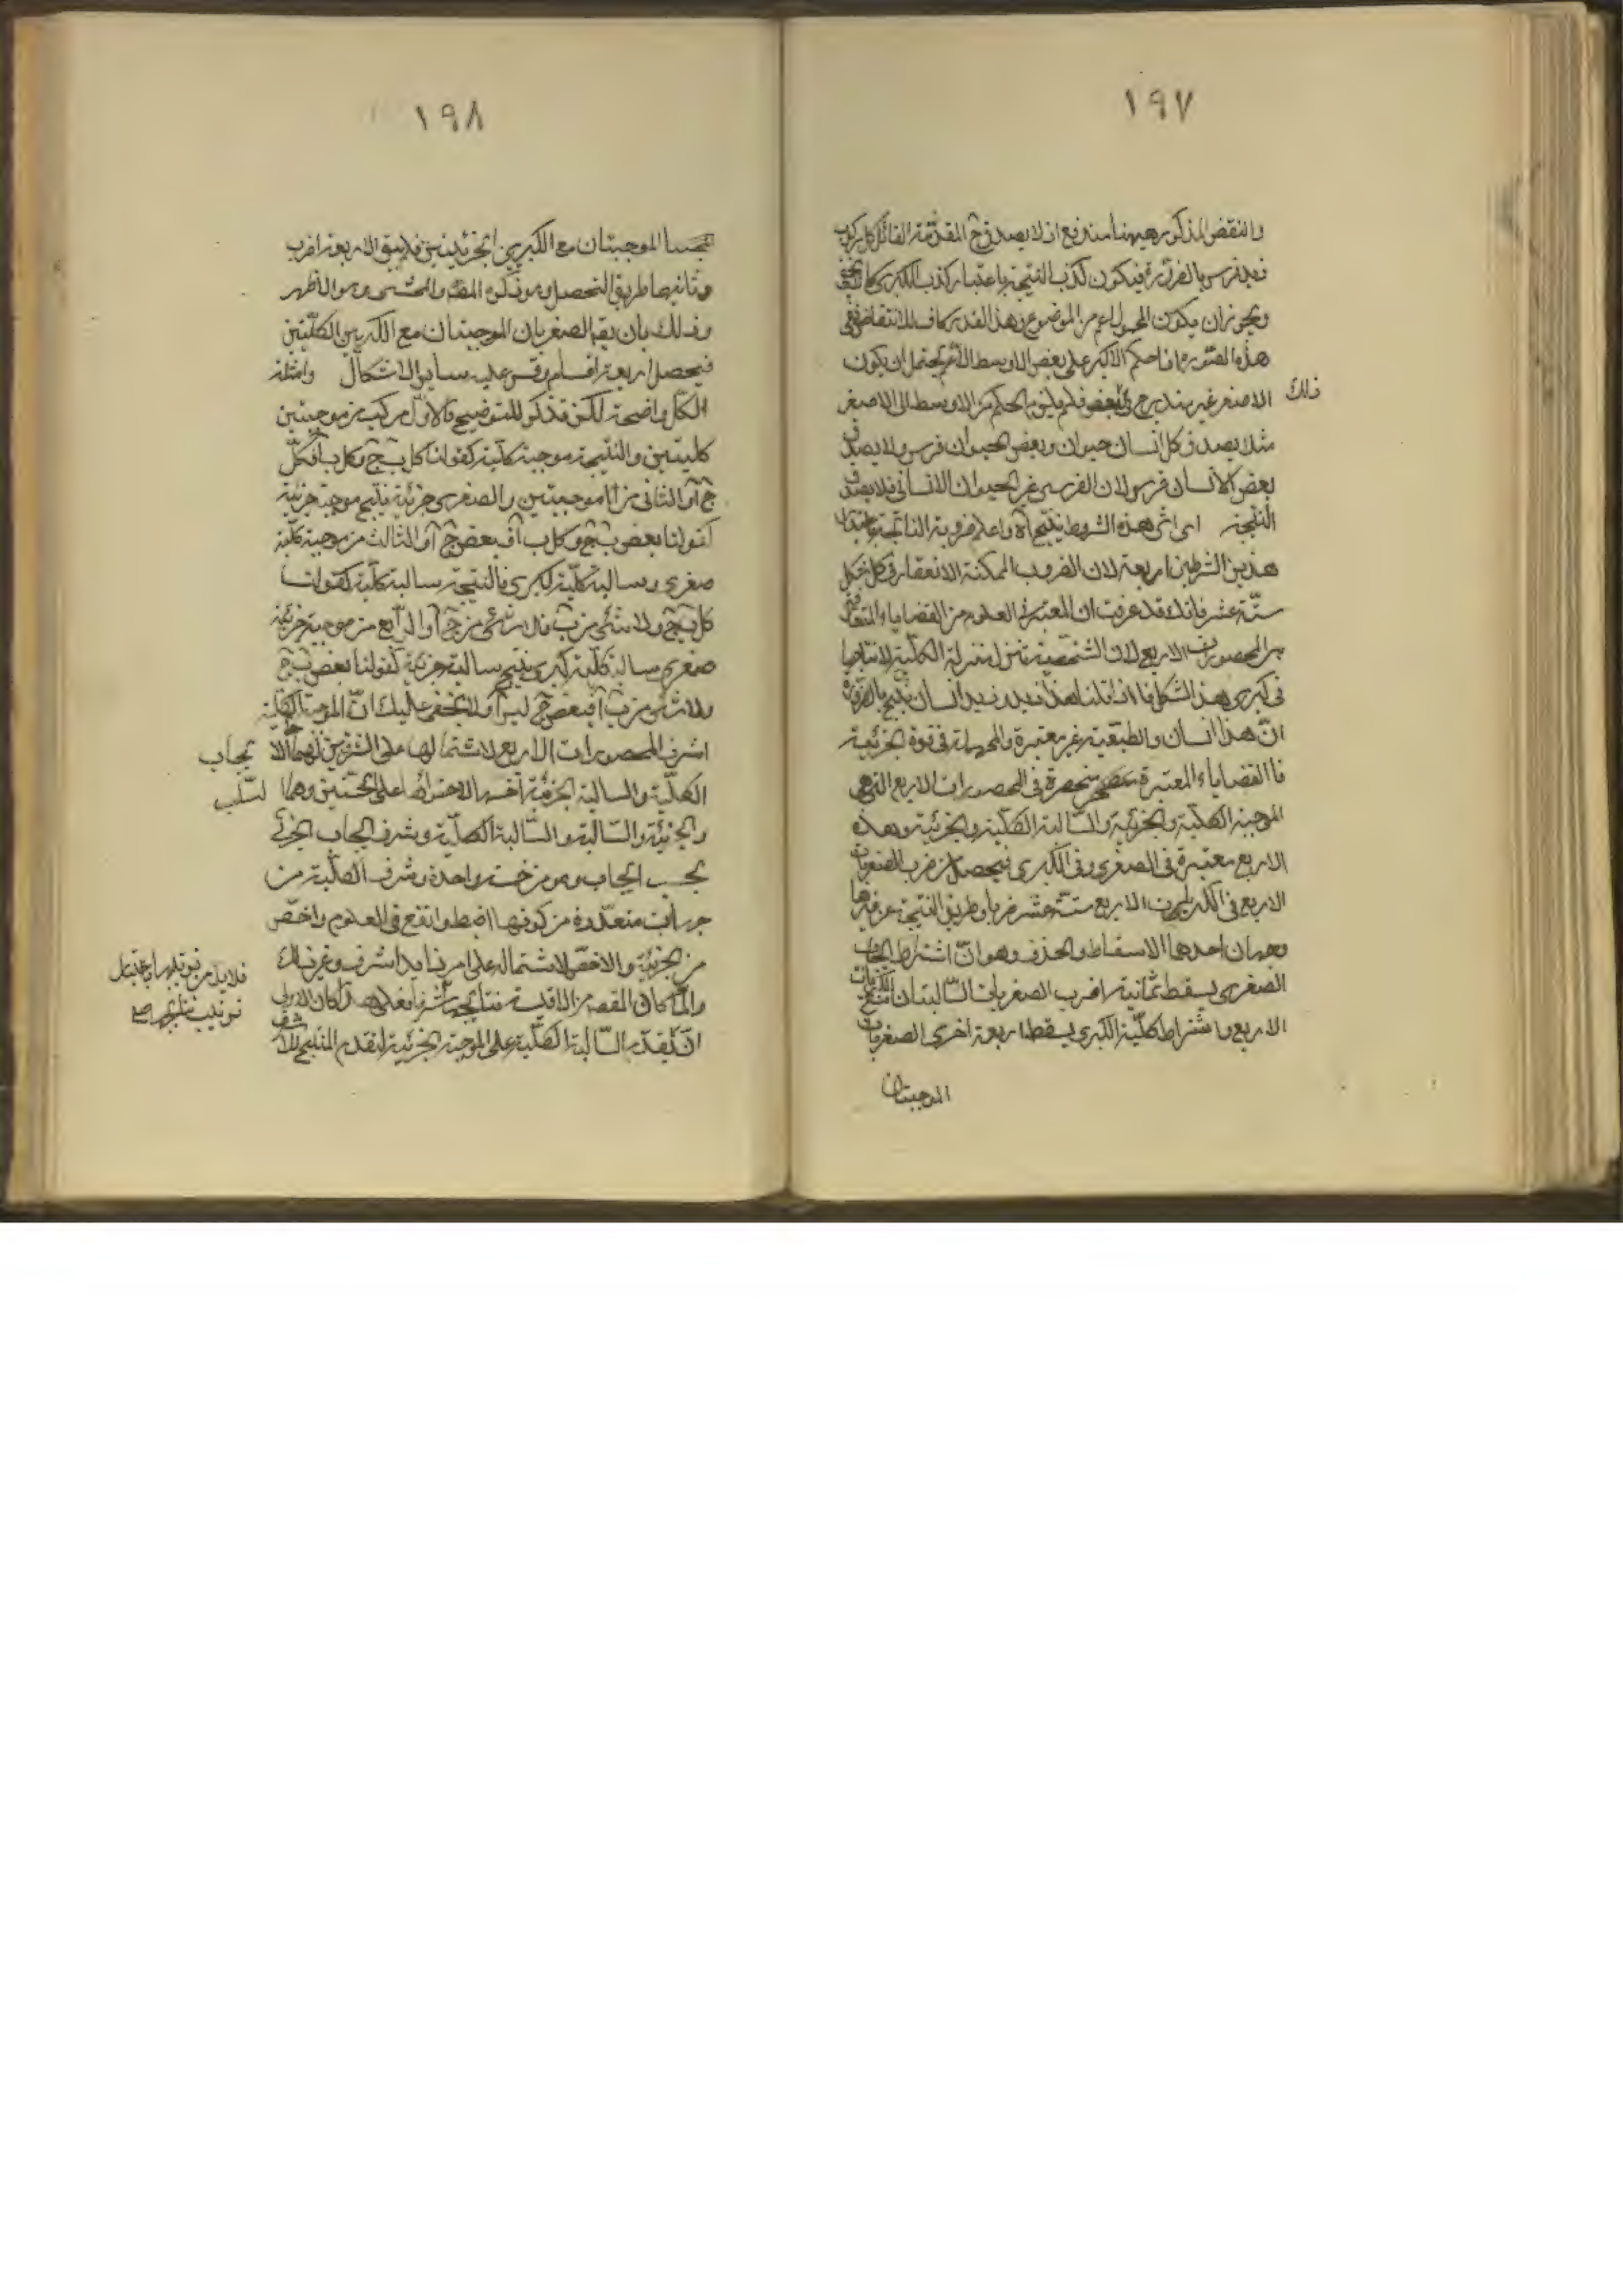 ١٩٧
والنقض المذكور ههنا مندفع اذ لا يصدق ح المقدمة القائل كل مركوب
زيد فرس بالضرورة فيكون كذب النتيجة باعتبار كذب الكبرى كما لا يخفى
ويجوز ان يكون المحمول اعم من الموضوع وهذا القدر كاف للانتقاض ففى
هذه الصورة اذا حكم الاكبر على بعض الاوسط الاعم يحتمل ان يكون
الاصغر غير مندرج فى ذلك البعض فلم يلزم الحكم من الاوسط الى الاصغر
مثلا يصدق كل انسان حيوان وبعض الحيوان فرس ولا يصدق
بعض الانسان فرس لان الفرس غير الحيوان الانسانى فلا يصدق
النتيجة اى اثر هذه الشروط ينتج آه واعلم ضروبه الناتجة باعتبار
هذين الشرطين اربعة لان الضروب الممكنة الانعقاد فى كل شكل
ستة عشر فانك قد عرفت ان المعتبر فى العلوم من القضايا والمتعارف
هى المحصورات الاربع لان الشخصية تنزل منزلة الكلية لانتاجها
فى كبرى هذا الشكل فاذا قلنا هذا زيد وزيد انسان ينتج بالضرورة
ان هذا انسان والطبعية غير معتبرة والمهملة فى قوة الجزئية
فالقضاياء المعتبرة منحصرة فى المحصورات الاربع التى هى
الموجبة الكلية والجزئية والسالبة الكلية والجزئية وهذه
الاربع معتبرة فى الصغرى وفى الكبرى فيحصل من ضرب الصغريات
الاربع فى الكبريات الاربع ستة عشر ضربا وطريق النتيجة
وجهان احدها الاسقاط والحذف وهو ان اشتراط ايجاب
الصغرى يسقط ثمانية اضرب الصغريان السالبتان مع الكبريات
الاربع واشتراط كلية الكبرى يسقط اربعة اخرى الصغريان
الموجبتان
١٩٨
الموجبتان مع الكبريين الجزئيتين فلا يبقى الا اربعة اضرب
وثانيها طريق التحصيل وهو ذكره المص والمحشى وهو الاظهر
وذلك بان يقه الصغريان الموجبتان مع الكبريين الكليتين
فيحصل اربعة اقسام وقس عليه سائر الاشكال وامثلة
الكل واضحة لكن نذكر للتوضيح فالاول مركب من موجبتين
كليتين والنتيجة موجبة كلية كقولنا كل ب ج وكل ب ا فكل
ج ا والثانى من الموجبتين والصغرى جزئية ينتج موجبة جزئية
كقولنا بعض ب ج وكل ب ا فبعض ج ا والثالث من موجبة كلية
صغرى وسالبة كلية كبرى فالنتيجة سالبة كلية كقولنا
كل ب ج ولا شئ من ب ا فلا شئ من ج ا والرابع من موجبة جزئية
صغرى سالبة كلية كبرى ينتج سالبة جزئية كقولنا بعض ب ج
ولا شئ من ب ا فبعض ج ليس ا ولا يخفى عليك ان الموجبة الكلية
اشرف المحصورات الاربع لاشتمالها على الشرفين هما الايجاب
الكلية والسالبة الجزئية اخسها لاحتوائها على الخستين وهما السلب
والجزئية والسالبة والسالبة الكلية وشرف ايجاب الجزئى
بحسب ايجاب وهو من خسة واحدة وشرف الكلية من
جهات متعددة من كونها اضبط وانفع فى العلوم واخص
من الجزئية والاخص لاشتماله على امر زايد اشرف وغير ذلك
ولما كان المقصد من الاقيسة نتايجها فلا بد من ترتيبها باعتبار
ترتيب نتايجها صح
ان يقدم السالبة الكلية على الموجبة الجزئية لتقدم المنتج للاشرف